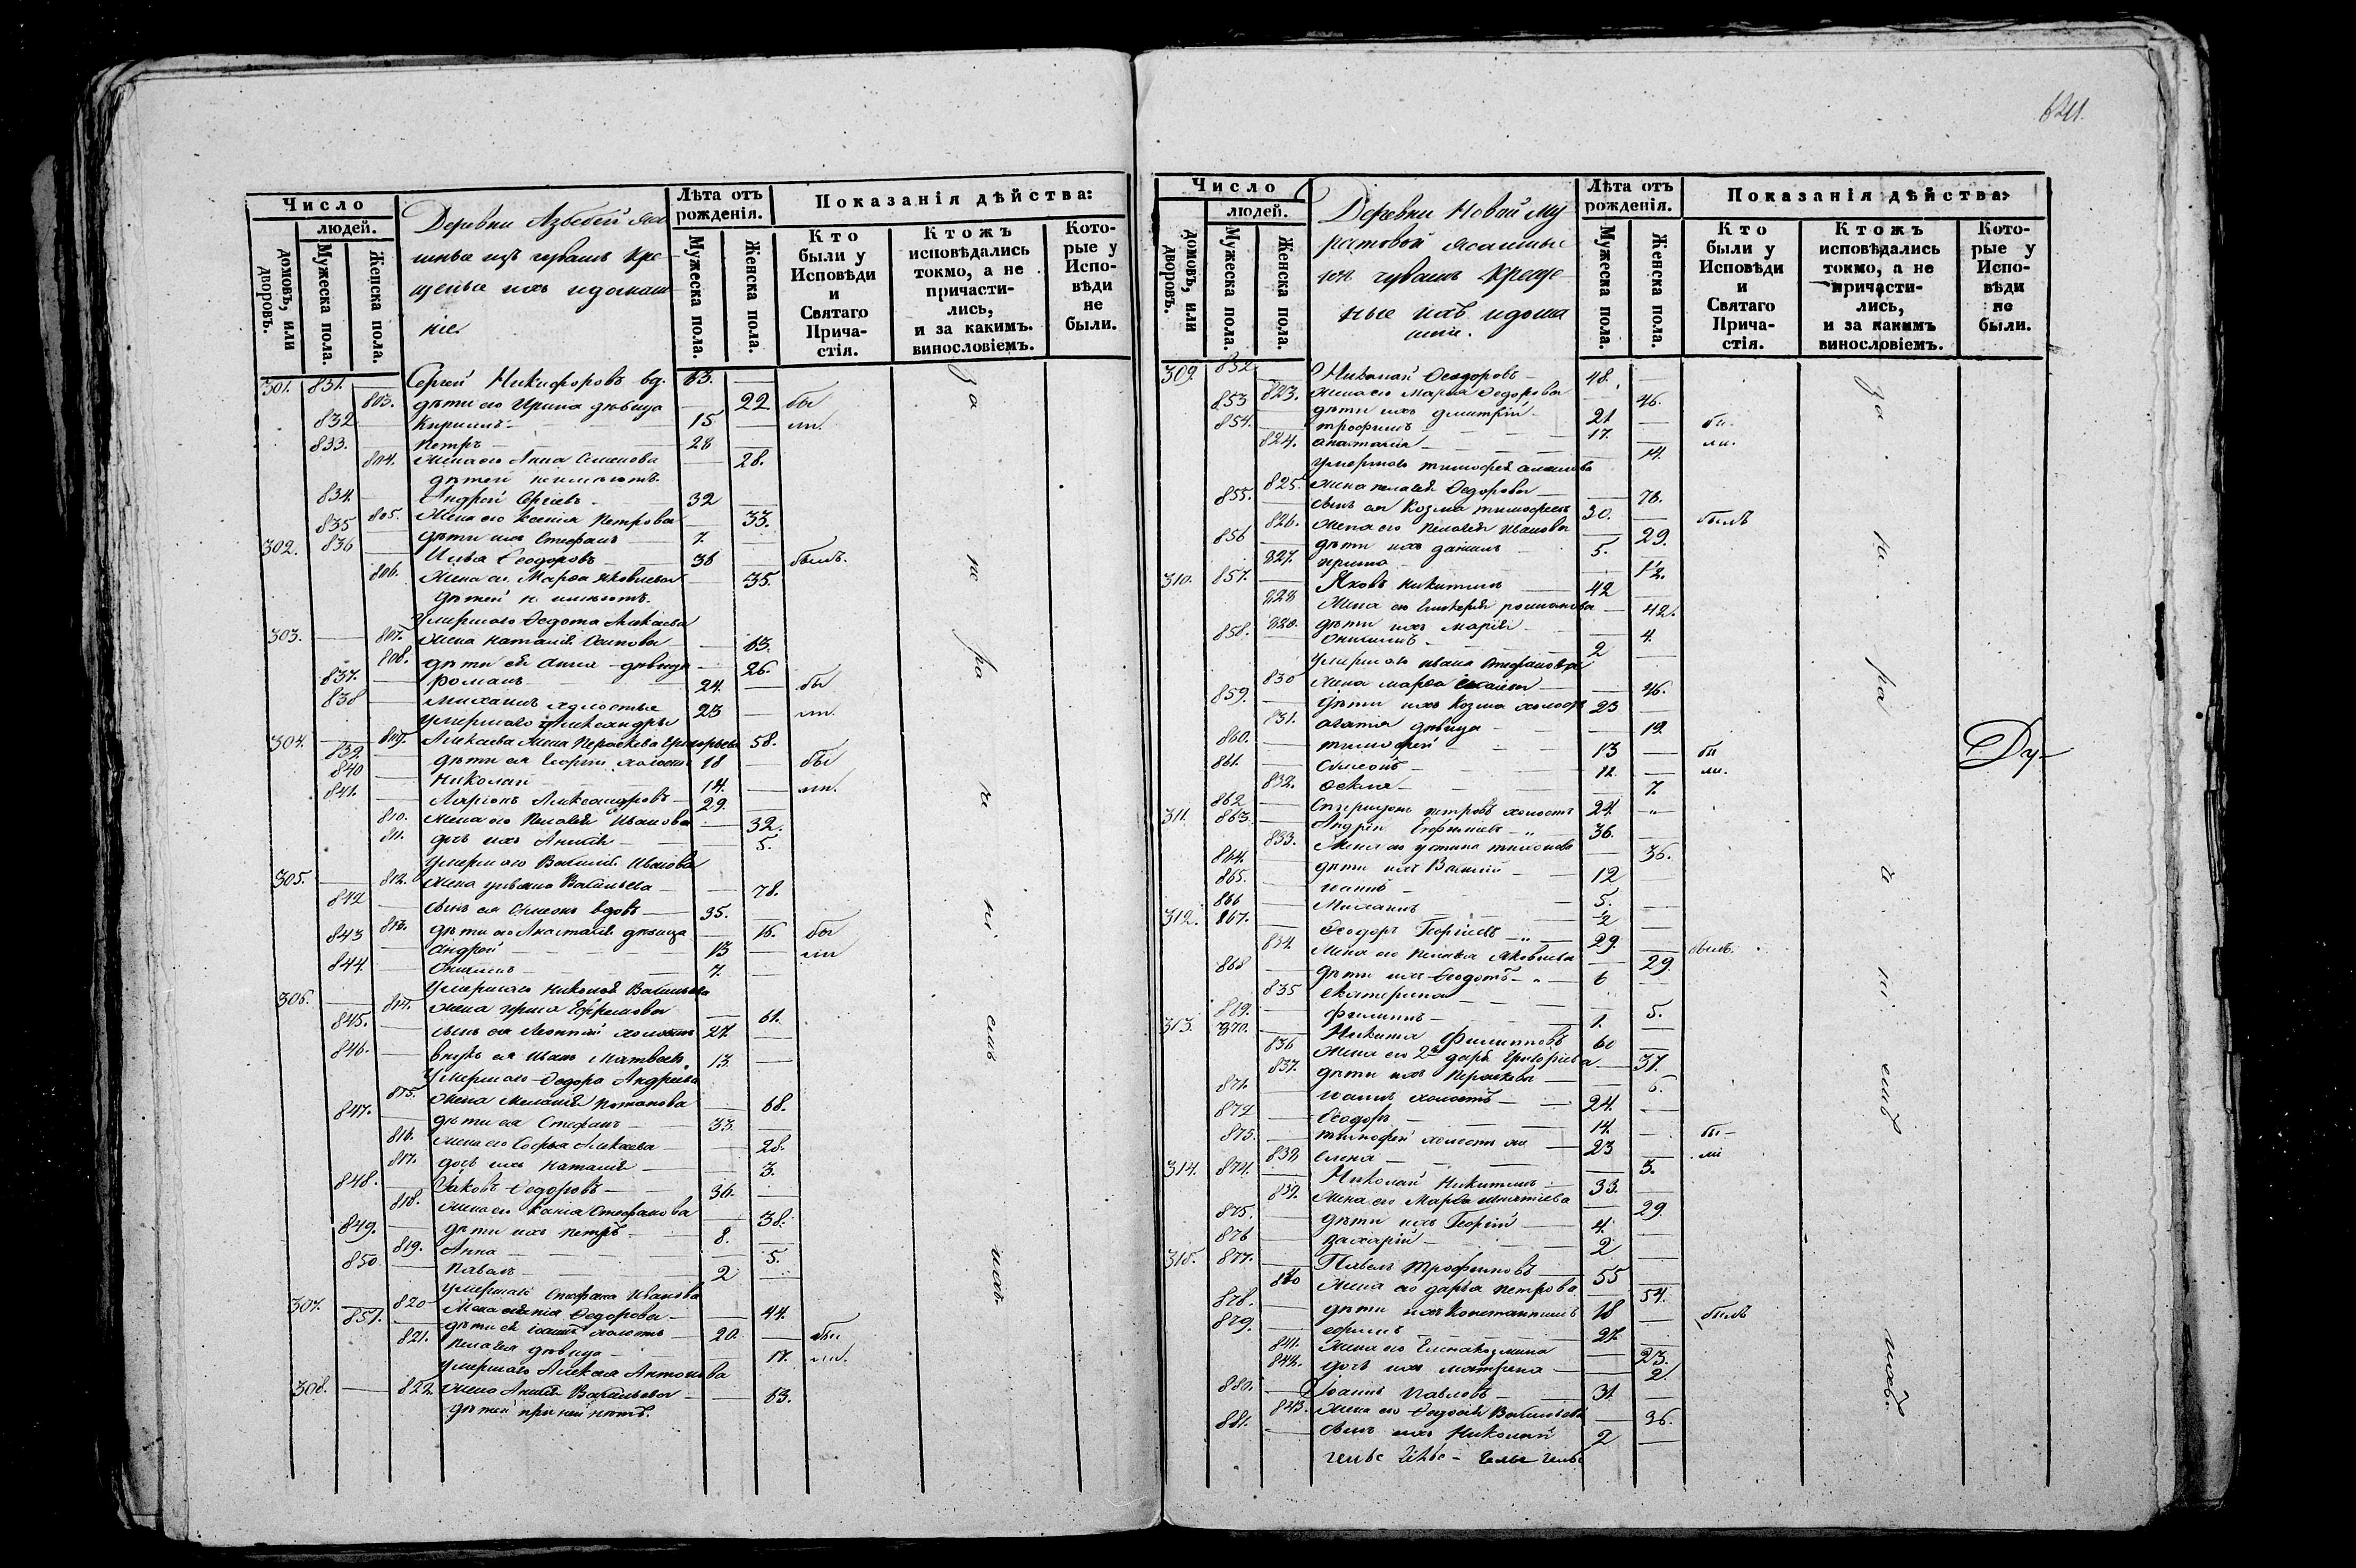 641.
Число
людей.
домовъ, или дворовъ.
Мужеска пола.
Женска пола.
Деревни Азбебей яса
шные изъ чувашъ кре
щеные ихъ идомаш
ніе
Лѣта отъ рожденія.
Мужеска пола.
Женска пола.
Показанія дѣйства:
Кто были у Исповѣди и Святаго Прича-стія.
Ктожъ исповѣдались токмо, а не причасти-лись, и за какимъ. винословіемъ.
Кото-рые у Испо-вѣди не были.
301. 831. Сергей Никифоровъ вд. 63.
803. дѣти его Ирина дѣвица 22 бы
832 Кирилъ 15 ли.
833. Петръ 28
804. Жена его Анна Семенова 28.
дѣтей неимеютъ.
834. Андрей Сергѣевъ 32
835 805. Жена его Ксенія Петрова 33.
836 дѣти ихъ Стефанъ 7.
302. Илья Ѳеодоровъ 38 былъ.
806. Жена его Марѳа Яковлева 35.
дѣтей не имеютъ.
Умершаго Ѳедота Алексеева
303. 807. Жена Наталія Осипова 63.
808. дѣти ея Анна дѣвица 26.
837. Романъ 24. бы
838 Михаилъ холостые 23 ли.
Умершаго Александры
304. 809. Алексеева жена Параскева Григорьева 58.
839. дѣти ея Георгій холостъ 18 бы
840 Николай 14. ли.
841. Ларіонъ Александровъ 29.
810. Жена его Пелагея Иванова 32.
811. дочь ихъ Анисія 5.
Умершаго Василія Иванова
305. 812. Жена Ульяна Васильева 78.
842 сынъ ея Симеонъ вдовъ 35.
843 813. дѣти его Анастасія дѣвица 16. бы
Андрей 13 ли
844. Онисимъ 7.
Умершаго Николая Васильева
306. 814. Жена Ирина Ефремова 61.
845. сынъ ея Леонтій холостъ 27.
846. внукъ ея Иванъ Матвеевъ 13.
Умершаго Ѳедора Андреева
815. Жена Меланія Потапова 68.
847. дѣти ея Стефанъ 33.
816. Жена его Софья Алексеева 28.
817. дочь ихъ Наталія 3.
848. Іаковъ Ѳедоровъ 36.
818. Жена его Ксенія Стефанова 38.
849. дѣти ихъ Петръ 8.
819. Анна 5.
850 Павелъ 2
Умершаго Стефана Иванова
307. 820 Жена Ѳедорова 44.
851. дѣти ея Іоаннъ холостъ 20. бы
821. Пелагея дѣвица 17. ли.
Умершаго Алексея Антонова
308. 822. Жена Анисія Васильева 63.
дѣтей при ней нѣтъ.
За не ра че ні емъ ихъ
Число
людей.
домовъ, или дворовъ.
Мужеска пола.
Женска пола.
Деревни Новой Му
ратовой ясашные
изъ чувашъ креще
ные ихъ идома
шніе.
Лѣта отъ рожденія.
Мужеска пола.
Женска пола.
Показанія дѣйства:
Кто были у Исповѣди и Святаго Прича-стія.
Ктожъ исповѣдались токмо, а не причасти-лись, и за какимъ винословіемъ.
Кото-рые у Испо-вѣди не были.
309. 852 Николай Ѳеодоровъ 48.
823. Жена его Марѳа Ѳедорова 46.
853 дѣти ихъ Дмитрій 21 бы
854. Трофимъ 17. ли.
824. Анастасія 14.
Умершаго Тимофея
825. Жена Пелагея Ѳедорова 76.
855. сынъ ея Козма Тимофеевъ 30. былъ
826. Жена его Пелагея Иванова 29.
856 дѣти ихъ Данилъ 5.
827. Ирина 1/2.
310. 857. Яковъ Никитинъ 42
828 Жена его Гликерія Романова 42.
829. дѣти ихъ Марія 4.
858. Онисимъ 2
Умершаго Ивана Стефанова
830 Жена Марѳа 46.
859. дѣти ихъ Козма холостъ 23
831. Агатія дѣвица 19.
860. Тимофей 13 бы
861. Симеонъ 12. ли.
832. Ѳекла 7.
862 Спиридонъ Петровъ холостъ 24. "
311. 863. Андрей 36.
833. Жена его Устина Тихонова 36.
864. дѣти ихъ Василій 12
865. Іоаннъ 5.
866 Михаилъ 1/2
312. 867. Ѳеодоръ Георгіевъ 29 былъ.
834. Жена его Пелагея Яковлева 29.
868 дѣти ихъ Ѳеодотъ 6
835 Екатерина 5.
869. Филипъ 1.
313. 870. Никита Филипповъ 60
836 Жена его 2я Дарья Григорьева 37.
837. дѣти ихъ Параскева 6.
871. Іоаннъ холостъ 24.
872 Ѳеодоръ 14. бы
873. Тимофей холосты 23 ли
838 Елена 3.
314. 874. Николай Никитинъ 33.
839. Жена его Марѳа Игнатіева 29.
875. дѣти ихъ Георгій 4.
876 Захарій 2
315. 877. Павелъ Трофимовъ 55
840 Жена его Дарья Петрова 54.
878. дѣти ихъ Константинъ 18 былъ
879. Ефимъ 27.
841. Жена его Елена Козмина 23.
842. дочь ихъ Матрена 2
880. Іоаннъ Павловъ 31.
843. Жена его Ѳедосія Васильева 36.
881. сынъ ихъ Николай 2
За не ра че ні емъ ихъ.
Ду-